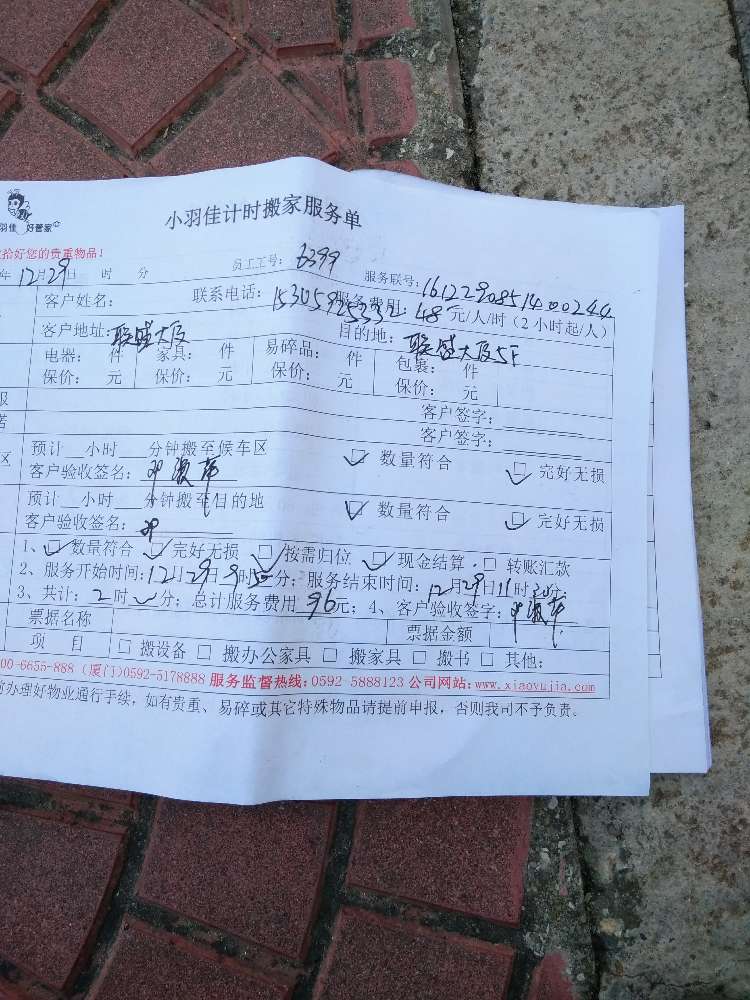 小羽佳计时搬家服务单
羽佳 好管家
拾好您的贵重物品！
年12月29日 时 分 员工工号：6399 服务联号：161229085140244
客户姓名： 联系电话：15305925332 服务费用：48元/人/时（2小时起/人）
客户地址：联盛大厦 目的地：联盛大厦5F
电器： 件 家具： 件 易碎品： 件 包裹： 件
保价： 元 保价： 元 保价： 元 保价： 元
客户签字：
客户签字：
预计__小时___分钟搬至候车区
客户验收签名：邓 ☑ 数量符合 ☑ 完好无损
预计__小时___分钟搬至目的地
客户验收签名：邓 ☑ 数量符合 ☑ 完好无损
1、☑ 数量符合 ☑ 完好无损 □ 按需归位 ☑ 现金结算 □ 转账汇款
2、服务开始时间：12月29日9时 分；服务结束时间：12月29日11时30分；
3、共计：2时 分；总计服务费用 96元；4、客户验收签字：邓
票据名称 票据金额
项 目 □ 搬设备 □ 搬办公家具 □ 搬家具 □ 搬书 □ 其他：
00-6655-888（厦门）0592-5178888 服务监督热线：0592-5888123 公司网站：www.xiaoyujia.com
前办理好物业通行手续，如有贵重、易碎或其它特殊物品请提前申报，否则我司不予负责。